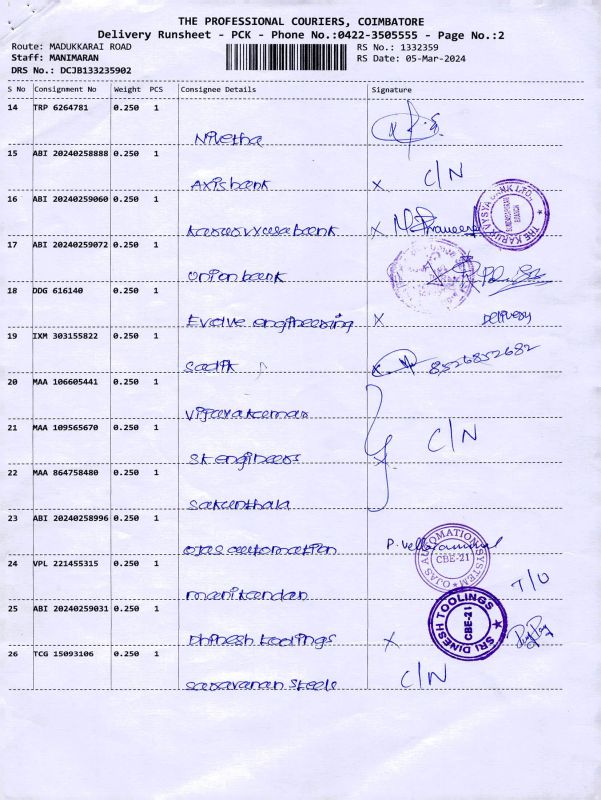 THE PROFESSIONAL COURIERS, COIMBATORE
Delivery Runsheet - PCK - Phone No.:0422-3505555 - Page No.:2
Route: MADUKKARAI ROAD
RS No.: 1332359
Staff: MANIMARAN
RS Date: 05-Mar-2024
DRS No.: DCJB133235902
S No Consignment No Weight PCS Consignee Details Signature
14 TRP 6264781 0.250 1
Nivetha
15 ABI 20240258888 0.250 1
Axis bank x C/N
16 ABI 20240259060 0.250 1
karurvysyabank x
THE KARUR VYSYA BANK LTD.
17 ABI 20240259072 0.250 1
Union bank
18 DDG 616140 0.250 1
Evolve engineering x Delivery
19 IXM 303155822 0.250 1
Sadik 8526852682
20 MAA 106605441 0.250 1
Vijayakumar
21 MAA 109565670 0.250 1
SK engineers C/N
22 MAA 864758480 0.250 1
Sakunthala
23 ABI 20240258996 0.250 1
Ojas automation
OJAS AUTOMATION SYSTEM
CBE-21
24 VPL 221455315 0.250 1
manikandan
25 ABI 20240259031 0.250 1
Dhinesh toolings x
SRI DINESH TOOLINGS
CBE-21
26 TCG 15093106 0.250 1
Saravanan Steels C/N